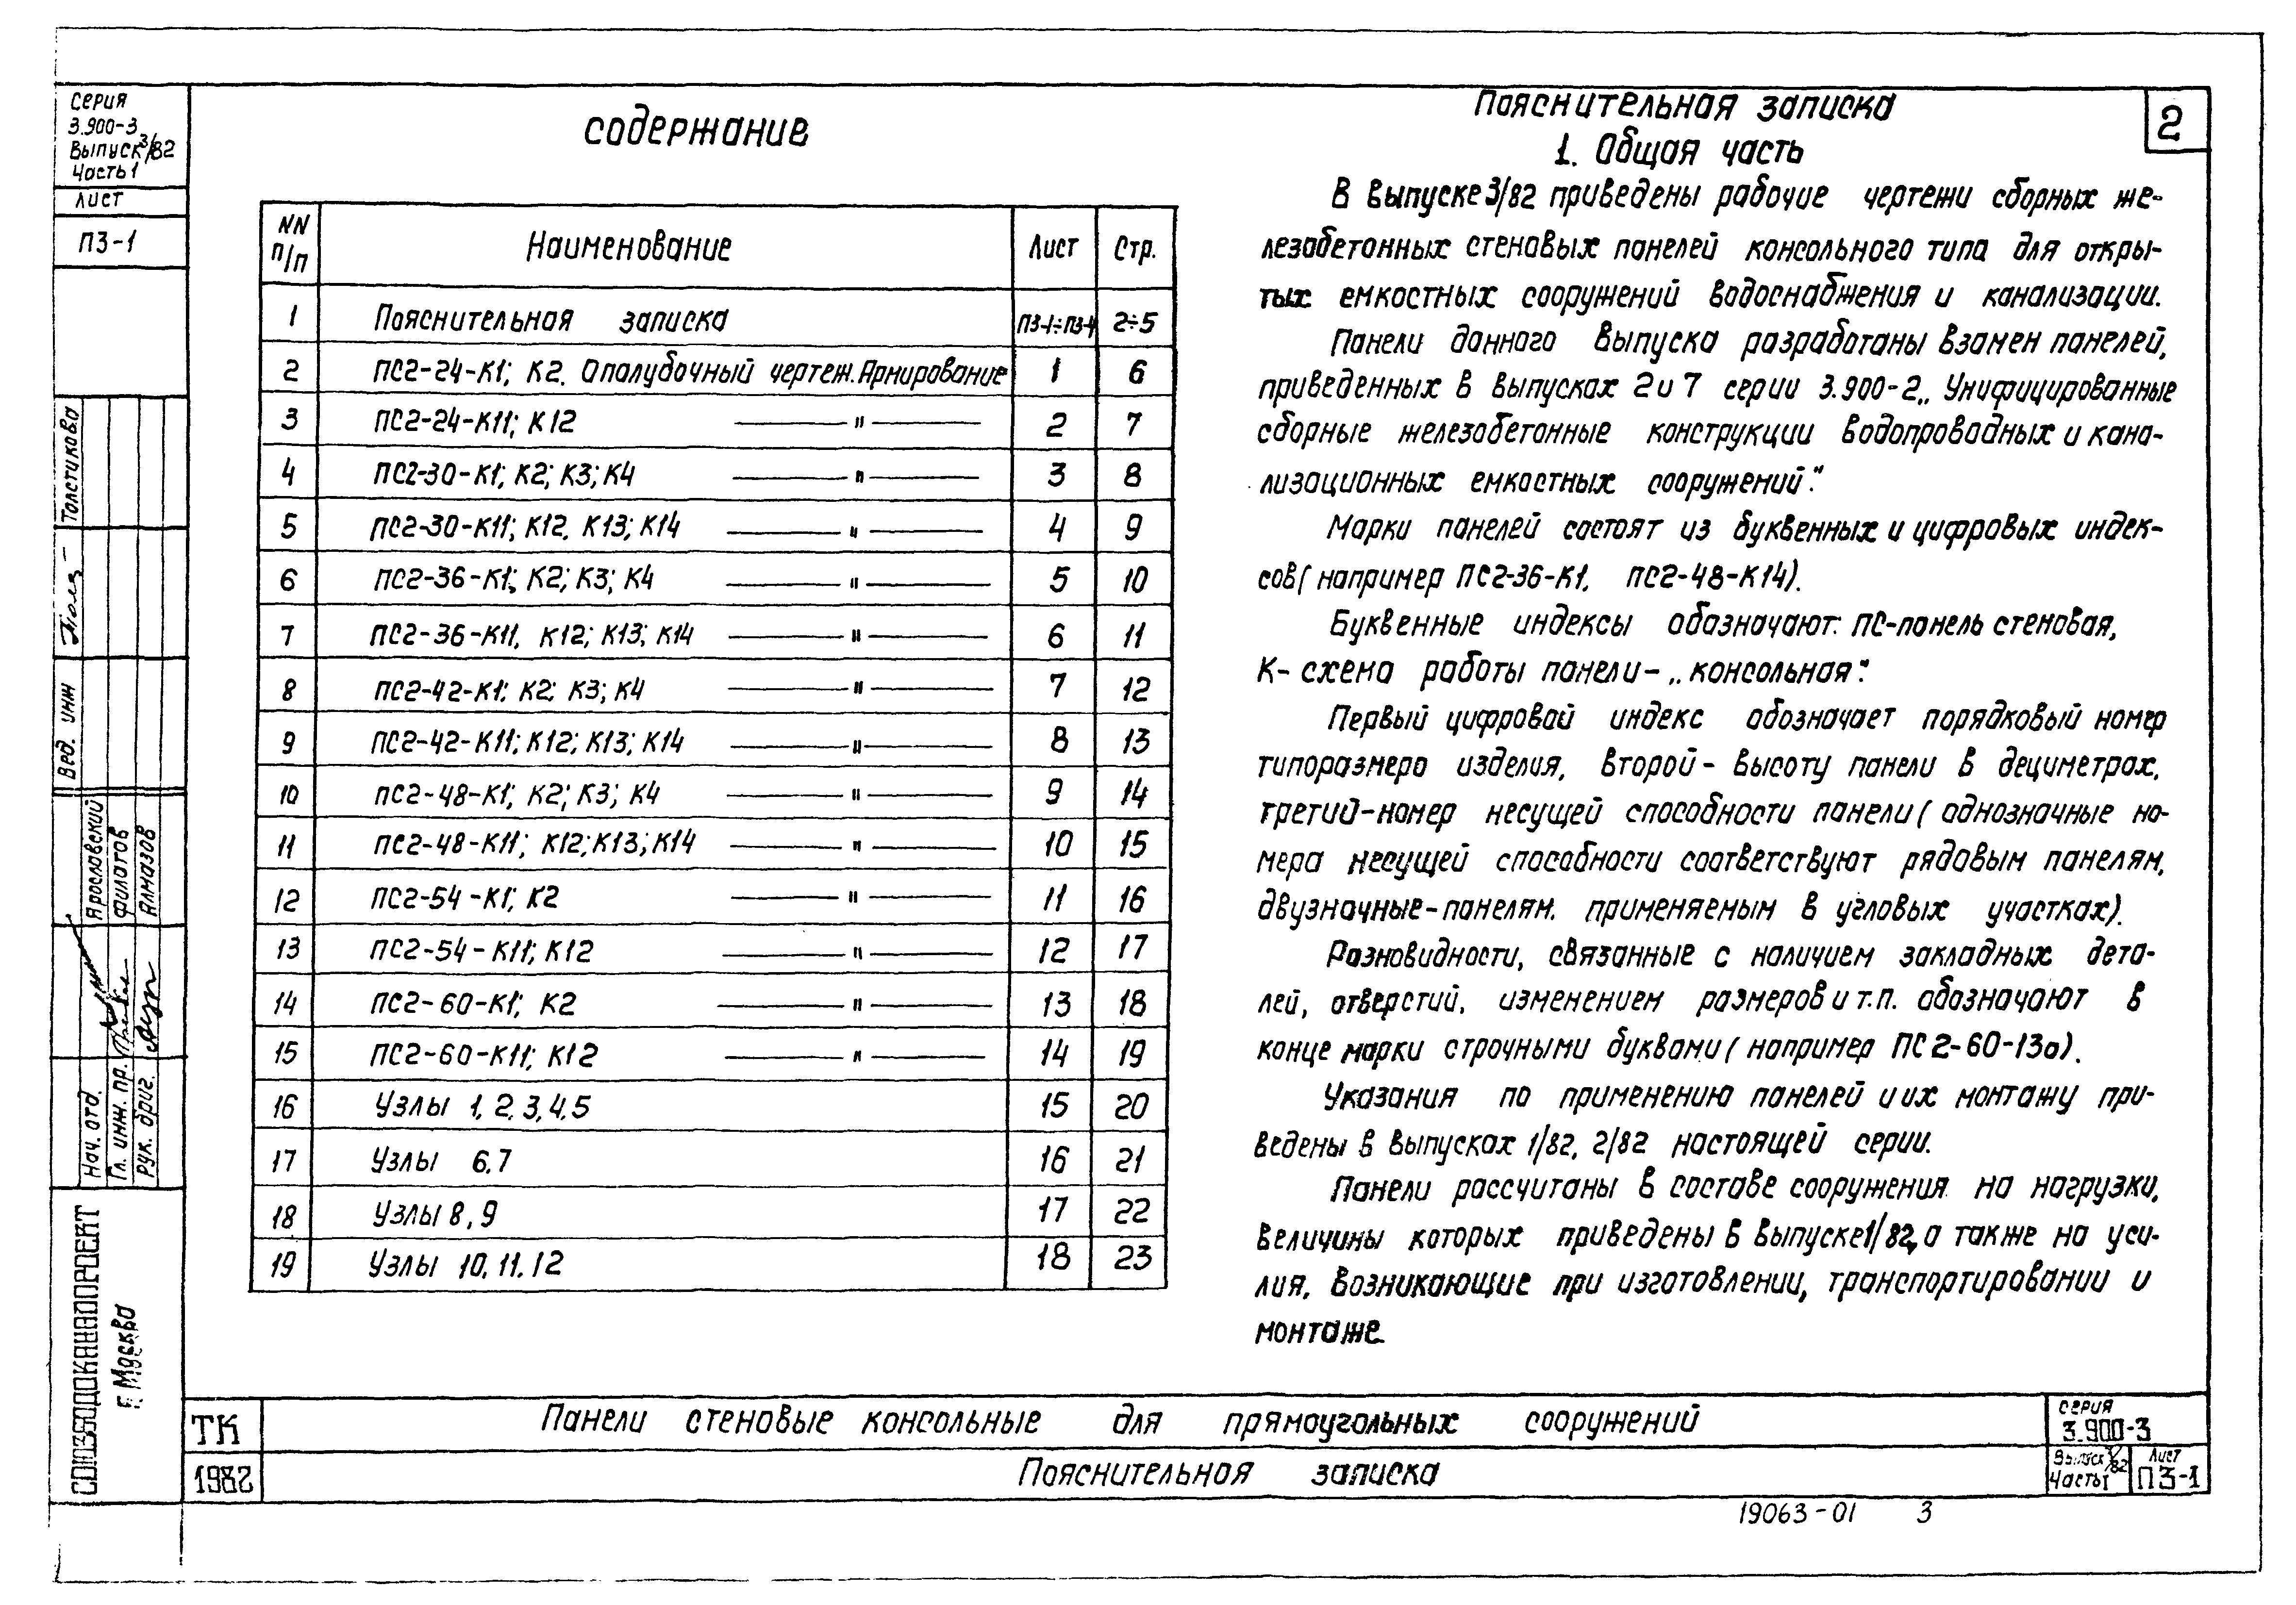 Серия
3.900-3
Выпуск 3/82
Часть 1
Лист
ПЗ-1
Толстикова
Вед. инж
Ярославский
Филатов
Алмазов
Нач. отд.
Гл. инж. пр.
Рук. бриг.
СОЮЗВОДОКАНАЛПРОЕКТ
г. Москва
Содержание
NN п/п Наименование Лист Стр.
1 Пояснительная записка ПЗ-1÷ПЗ-4 2÷5
2 ПС2-24-К1; К2. Опалубочный чертеж. Армирование 1 6
3 ПС2-24-К11; К12 —"— 2 7
4 ПС2-30-К1; К2; К3; К4 —"— 3 8
5 ПС2-30-К11; К12, К13; К14 —"— 4 9
6 ПС2-36-К1; К2; К3; К4 —"— 5 10
7 ПС2-36-К11, К12; К13; К14 —"— 6 11
8 ПС2-42-К1; К2; К3; К4 —"— 7 12
9 ПС2-42-К11; К12; К13; К14 —"— 8 13
10 ПС2-48-К1; К2; К3; К4 —"— 9 14
11 ПС2-48-К11; К12; К13; К14 —"— 10 15
12 ПС2-54-К1; К2 —"— 11 16
13 ПС2-54-К11; К12 —"— 12 17
14 ПС2-60-К1; К2 —"— 13 18
15 ПС2-60-К11; К12 —"— 14 19
16 Узлы 1, 2, 3, 4, 5 15 20
17 Узлы 6, 7 16 21
18 Узлы 8, 9 17 22
19 Узлы 10, 11, 12 18 23
2
Пояснительная записка
1. Общая часть
В выпуске 3/82 приведены рабочие чертежи сборных же-
лезобетонных стеновых панелей консольного типа для откры-
тых емкостных сооружений водоснабжения и канализации.
Панели данного выпуска разработаны взамен панелей,
приведенных в выпусках 2 и 7 серии 3.900-2 „Унифицированные
сборные железобетонные конструкции водопроводных и кана-
лизационных емкостных сооружений".
Марки панелей состоят из буквенных и цифровых индек-
сов (например ПС2-36-К1, ПС2-48-К14).
Буквенные индексы обозначают: ПС-панель стеновая,
К- схема работы панели- „консольная".
Первый цифровой индекс обозначает порядковый номер
типоразмера изделия, второй - высоту панели в дециметрах,
третий-номер несущей способности панели (однозначные но-
мера несущей способности соответствуют рядовым панелям,
двузначные-панелям, применяемым в угловых участках).
Разновидности, связанные с наличием закладных дета-
лей, отверстий, изменением размеров и т.п. обозначают в
конце марки строчными буквами (например ПС2-60-13а).
Указания по применению панелей и их монтажу при-
ведены в выпусках 1/82, 2/82 настоящей серии.
Панели рассчитаны в составе сооружения на нагрузки,
величины которых приведены в выпуске 1/82, а также на уси-
лия, возникающие при изготовлении, транспортировании и
монтаже
ТК
1982
Панели стеновые консольные для прямоугольных сооружений
Пояснительная записка
Серия
3.900-3
Выпуск 3/82
Часть 1
Лист
ПЗ-1
19063-01 3